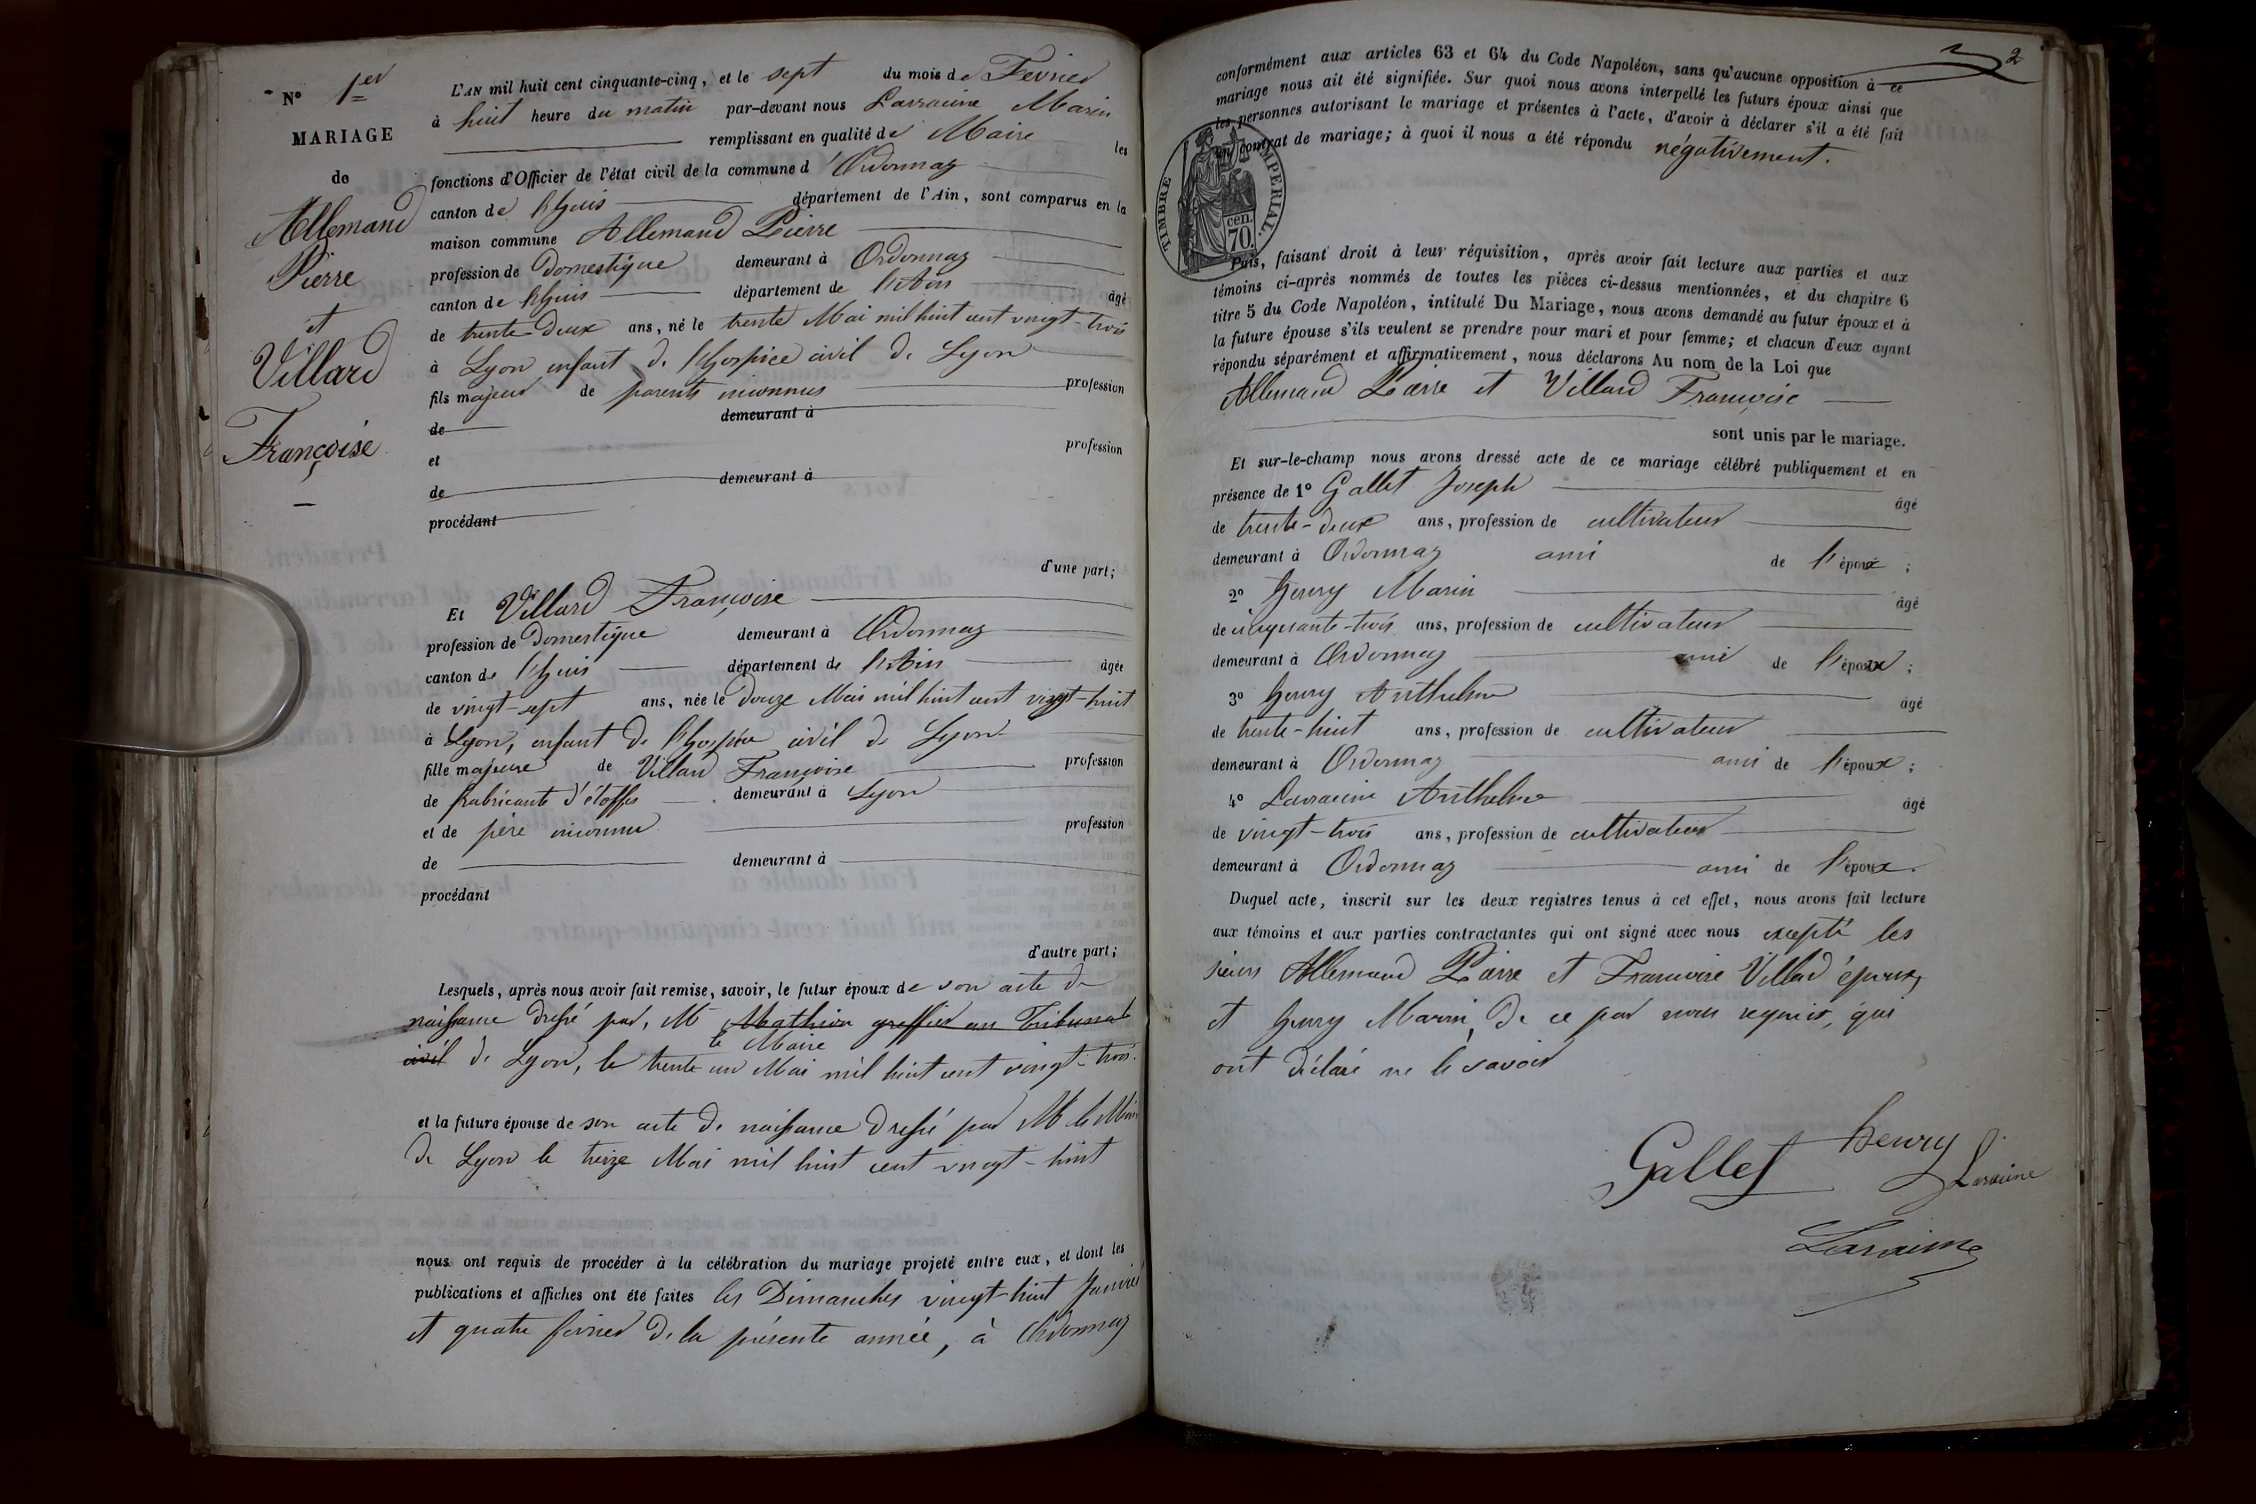 N° 1er
MARIAGE
de
Allemand
Pierre
et
Villard
Françoise
L'AN mil huit cent cinquante-cinq, et le sept du mois de Fevrier
à huit heure du matin par-devant nous Larraine Marin
remplissant en qualité de Maire les
fonctions d'Officier de l'état civil de la commune d'Ordonnaz
canton de Lhuis département de l'Ain, sont comparus en la
maison commune Allemand Pierre
profession de Domestique demeurant à Ordonnaz
canton de Lhuis département de l'Ain âgé
de trente-deux ans, né le trente Mai mil huit cent vingt-trois
à Lyon enfant de l'hospice civil de Lyon
fils majeur de parents inconnus profession
de demeurant à
et profession
de demeurant à
procédant
d'une part;
Et Villard Françoise
profession de Domestique demeurant à Ordonnaz
canton de Lhuis département de l'Ain âgée
de vingt-sept ans, née le Douze Mai mil huit cent vingt-huit
à Lyon, enfant de l'hospice civil de Lyon
fille majeure de Villard Françoise profession
de fabricante d'étoffes demeurant à Lyon
et de père inconnu profession
de demeurant à
procédant
d'autre part;
Lesquels, après nous avoir fait remise, savoir, le futur époux de son acte de
naissance dressé par, M Mathieu greffier au Tribunal
le Maire
civil de Lyon, le trente un Mai mil huit cent vingt-trois.
et la future épouse de son acte de naissance dressé par M le Maire
de Lyon le treize Mai mil huit cent vingt-huit
nous ont requis de procéder à la célébration du mariage projeté entre eux, et dont les
publications et affiches ont été faites les Dimanches vingt-huit Janvier
et quatre fevrier de la présente année, à Ordonnaz
2
conformément aux articles 63 et 64 du Code Napoléon, sans qu'aucune opposition à ce
mariage nous ait été signifiée. Sur quoi nous avons interpellé les futurs époux ainsi que
les personnes autorisant le mariage et présentes à l'acte, d'avoir à déclarer s'il a été fait
un contrat de mariage; à quoi il nous a été répondu négativement.
TIMBRE IMPERIAL.
70 cen.
Puis, faisant droit à leur réquisition, après avoir fait lecture aux parties et aux
témoins ci-après nommés de toutes les pièces ci-dessus mentionnées, et du chapitre 6
titre 5 du Code Napoléon, intitulé Du Mariage, nous avons demandé au futur époux et à
la future épouse s'ils veulent se prendre pour mari et pour femme; et chacun d'eux ayant
répondu séparément et affirmativement, nous déclarons Au nom de la Loi que
Allemand Pierre et Villard Françoise
sont unis par le mariage.
Et sur-le-champ nous avons dressé acte de ce mariage célébré publiquement et en
présence de 1° Gallet Joseph âgé
de trente-deux ans, profession de cultivateur
demeurant à Ordonnaz ami de l'époux;
2° henry Marin âgé
de cinquante-trois ans, profession de cultivateur
demeurant à Ordonnaz ami de l'époux;
3° henry Anthelme âgé
de trente-huit ans, profession de cultivateur
demeurant à Ordonnaz ami de l'époux;
4° Larraine Anthelme âgé
de vingt-trois ans, profession de cultivateur
demeurant à Ordonnaz ami de l'époux.
Duquel acte, inscrit sur les deux registres tenus à cet effet, nous avons fait lecture
aux témoins et aux parties contractantes qui ont signé avec nous excepté les
sieurs Allemand Pierre et Francoise Villard époux,
et henry Marin, de ce par nous requis, qui
ont déclaré ne le savoir
Gallet henry Laraine
Laraine